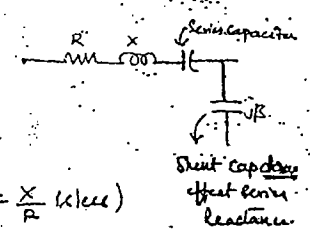 Series capacitor
R X
jβ
Shunt cap does
effect series
Reactance.
= X/R